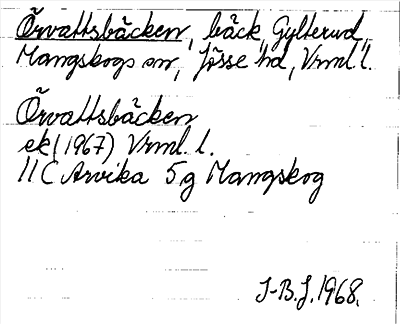 Örvattsbäcken, bäck, Gylterud,
Mangskogs sn, Jösse hd, Vrml. l.
Örvattsbäcken
ek (1967) Vrml. l.
11 C Arvika 5 g Mangskog
I-B.J. 1968.